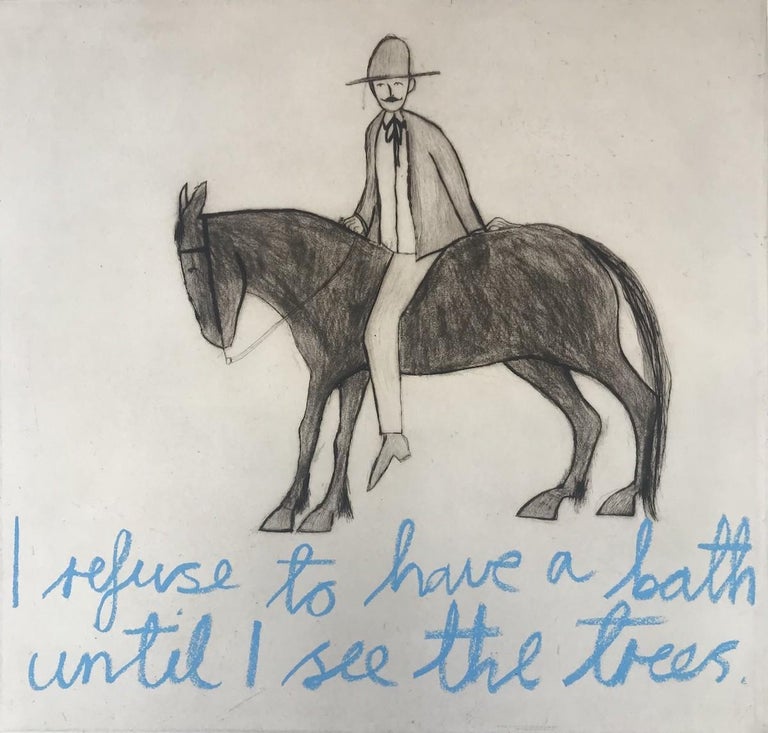 I refuse to have a bath
until I see the trees.